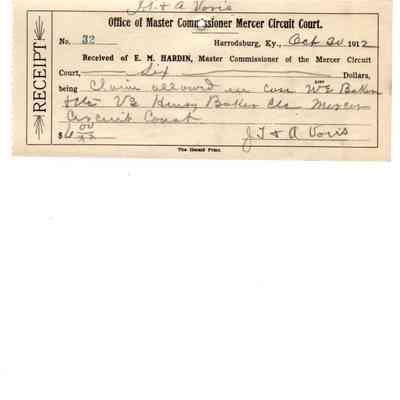 J.T. & A Voris
Office of Master Commissioner Mercer Circuit Court.
No. 32 Harrodsburg, Ky., Oct 30 1912
Received of E. M. HARDIN, Master Commissioner of the Mercer Circuit
Court, Six Dollars,
being Claim allowed in case W E Baker
&c Vs Henry Baker &c Mercer
Circuit Court
$6 00/xx J T & A Voris
The Herald Print.
RECEIPT